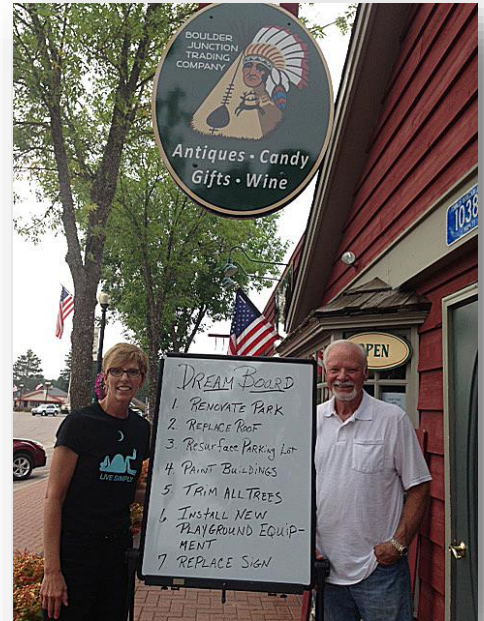 BOULDER
JUNCTION
TRADING
COMPANY
Antiques • Candy
Gifts • Wine
1038
OPEN
DREAM BOARD
1. RENOVATE PARK
2. REPLACE ROOF
3. Resurface PARKING Lot
4. PAINT BUILDINGS
5 TRIM ALL TREES
6 INSTALL NEW
PLAYGROUND EQUIP-
MENT
7 REPLACE SIGN
LIVE SIMPLY